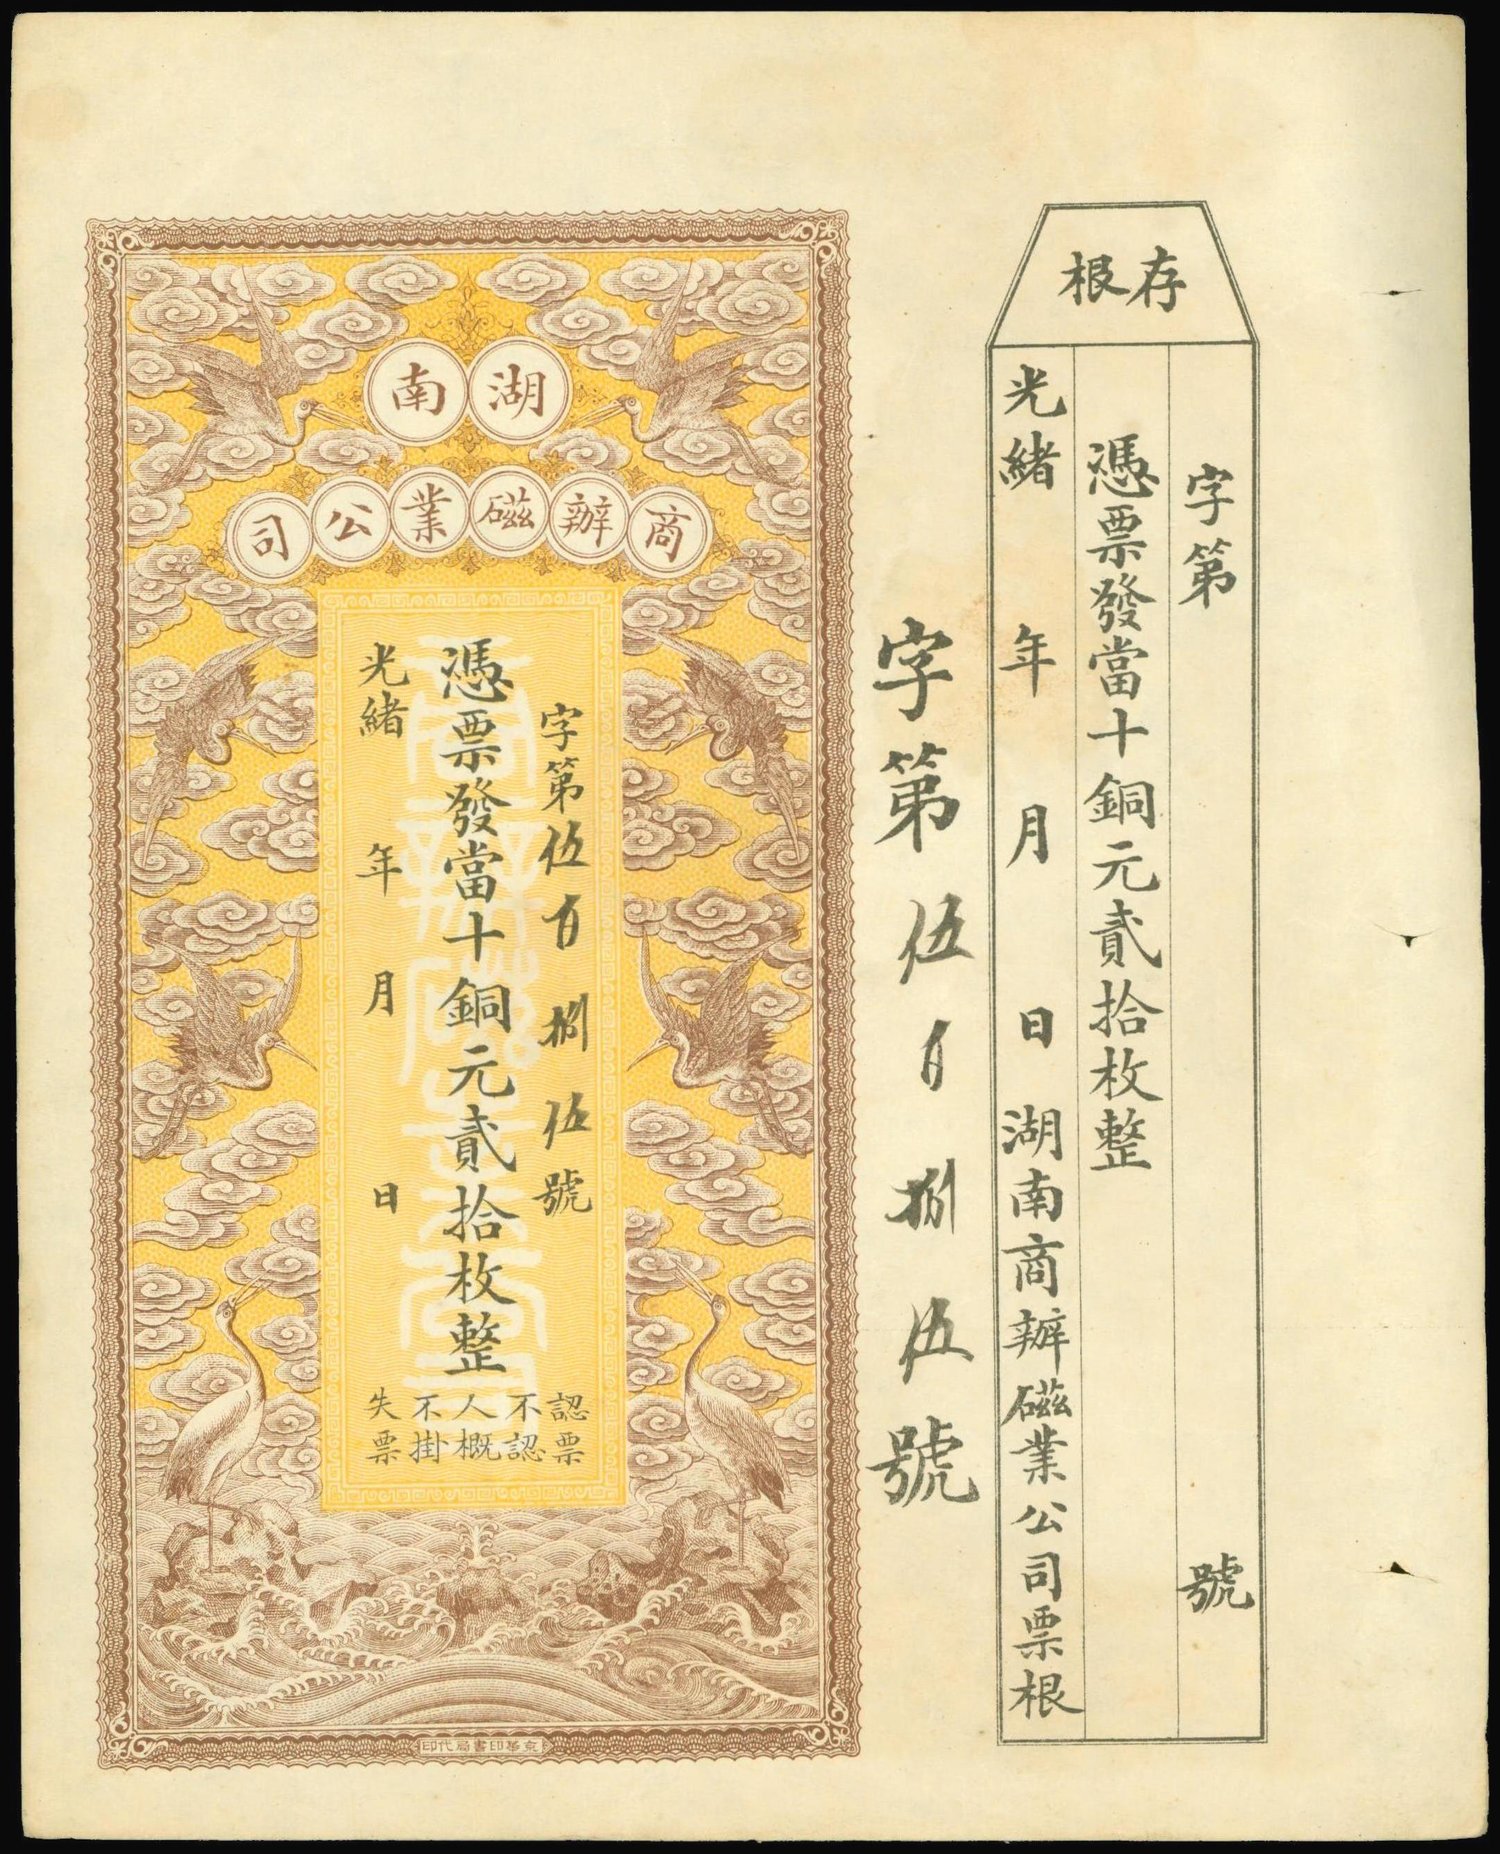 存根
字第 號
憑票發當十銅元貳拾枚整
光緒 年 月 日湖南商辦磁業公司票根
字第伍百捌伍號
湖南
商辦磁業公司
字第伍百捌伍號
憑票發當十銅元貳拾枚整
光緒 年 月 日
認票
不認
人概
不掛
失票
京華印書局代印